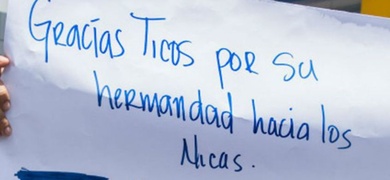 Gracías Ticos por su
hermandad hacia los
Nicas.